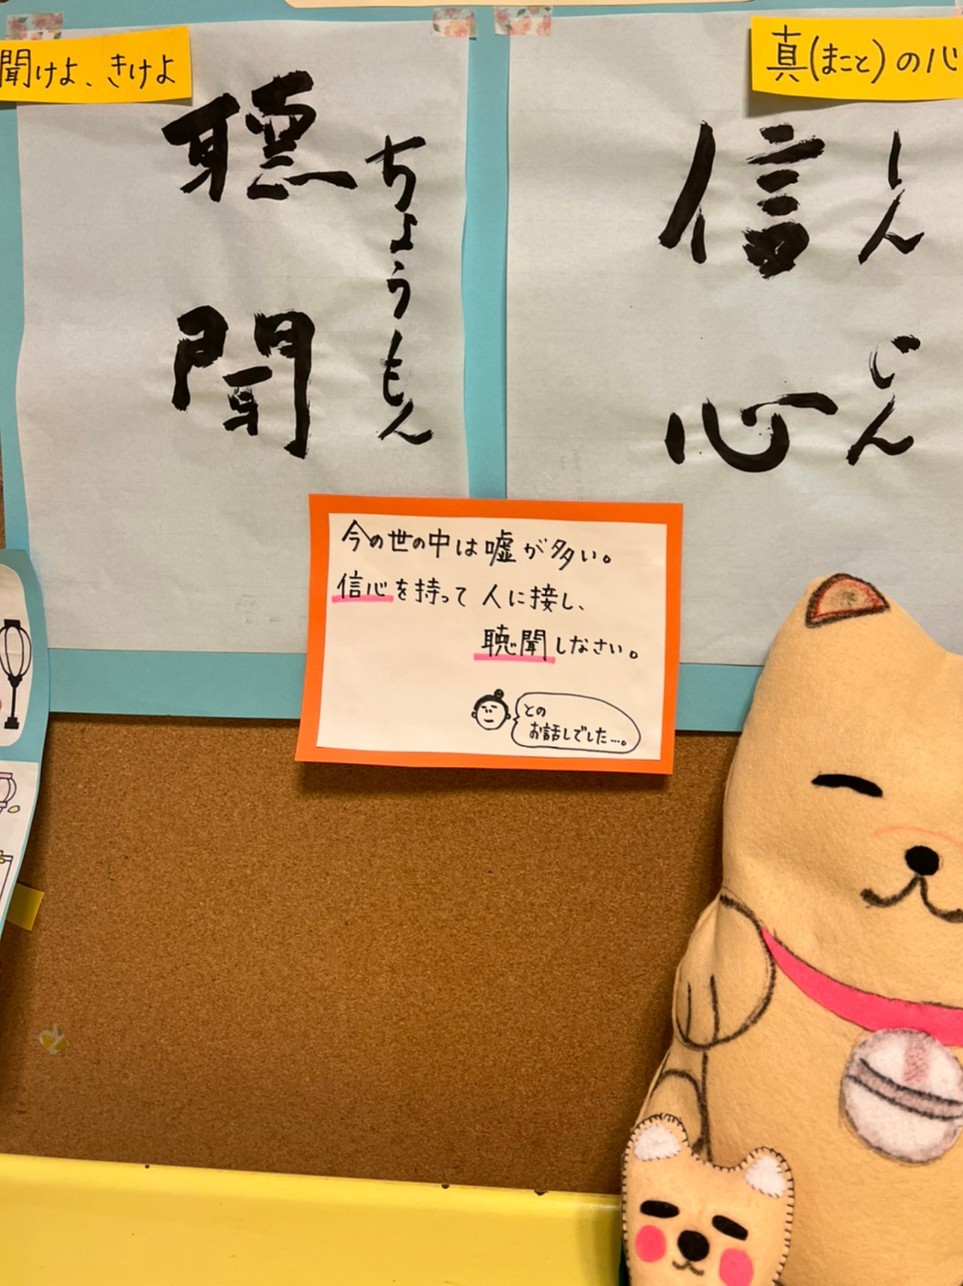 聞けよ、きけよ
聴聞
ちょうもん
真(まこと)の心
信心
しんじん
今の世の中は嘘が多い。
信心を持って 人に接し、
聴聞しなさい。
との
お話しでした…。